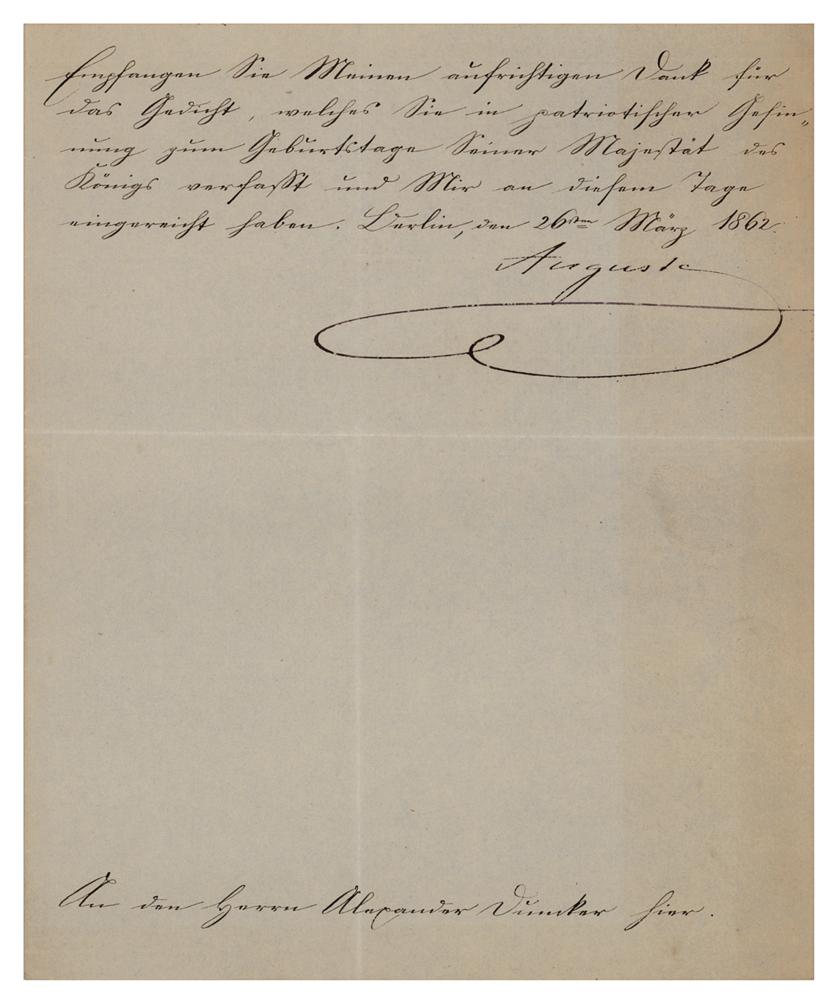 Empfangen Sie Meinen aufrichtigen Dank für
das Gedicht, welches Sie in patriotischer Gesin„
nung zum Geburtstage Seiner Majestät des
Königs verfasst und Mir an diesem Tage
eingereicht haben. Berlin, den 26sten März 1862.
Augusta
An den Herrn Alexander Duncker hier.